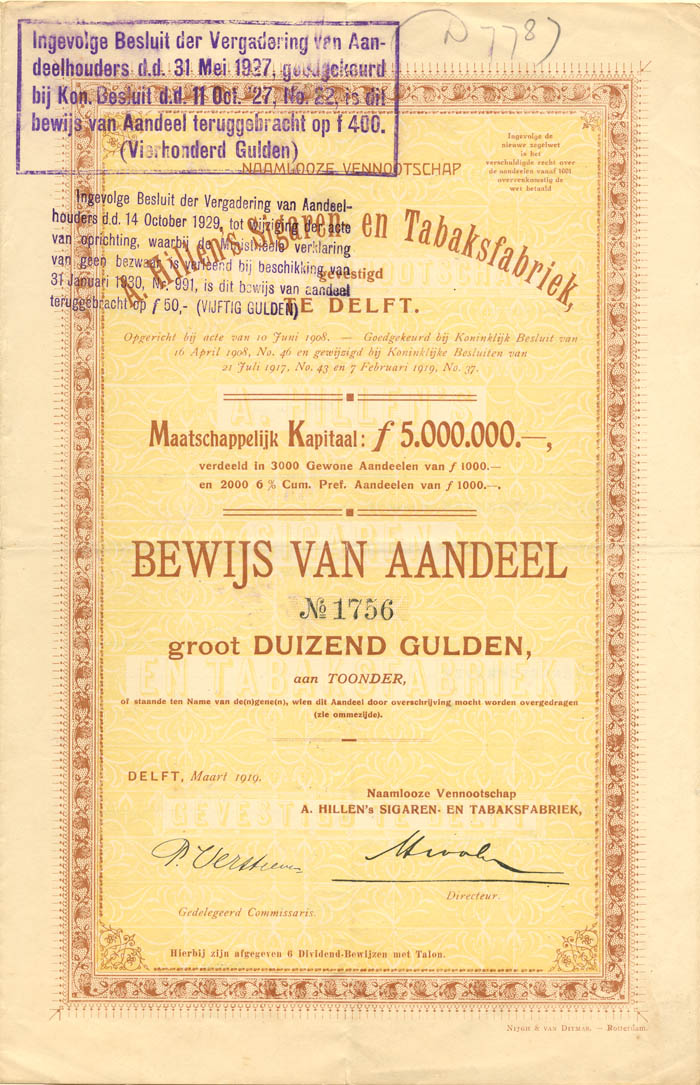 D 778)
Ingevolge Besluit der Vergadering van Aan-
deelhouders d.d. 31 Mei 1927, goedgekeurd
bij Kon. Besluit d.d. 11 Oct. '27, No. 22, is dit
bewijs van Aandeel teruggebracht op f 400.
(Vierhonderd Gulden)
Ingevolge de
nieuwe zegelwet
is het
verschuldigde recht over
de aandeelen vanaf 1601
overeenkomstig de
wet betaald
NAAMLOOZE VENNOOTSCHAP
Ingevolge Besluit der Vergadering van Aandeel-
houders d.d. 14 October 1929, tot wijziging der acte
van oprichting, waarbij de Ministrieele verklaring
van geen bezwaar is verleend bij beschikking van
31 Januari 1930, No. 991, is dit bewijs van aandeel
teruggebracht op f 50,- (VIJFTIG GULDEN)
A. Hillen's Sigaren- en Tabaksfabriek,
gevestigd
TE DELFT.
Opgericht bij acte van 10 Juni 1908. — Goedgekeurd bij Koninklijk Besluit van
16 April 1908, No. 46 en gewijzigd bij Koninklijke Besluiten van
21 Juli 1917, No. 43 en 7 Februari 1919, No. 37.
A. HILLEN'S
Maatschappelijk Kapitaal: f 5.000.000.—,
verdeeld in 3000 Gewone Aandeelen van f 1000.—
en 2000 6 % Cum. Pref. Aandeelen van f 1000.—.
SIGAREN-
BEWIJS VAN AANDEEL
No 1756
groot DUIZEND GULDEN,
EN TABAKSFABRIEK
aan TOONDER,
of staande ten Name van de(n)gene(n), wien dit Aandeel door overschrijving mocht worden overgedragen
(zie ommezijde).
DELFT, Maart 1919.
Naamlooze Vennootschap
A. HILLEN's SIGAREN- EN TABAKSFABRIEK,
GEVESTIGD TE DELFT
Directeur.
Gedelegeerd Commissaris.
Hierbij zijn afgegeven 6 Dividend-Bewijzen met Talon.
NIJGH & VAN DITMAR. — Rotterdam.